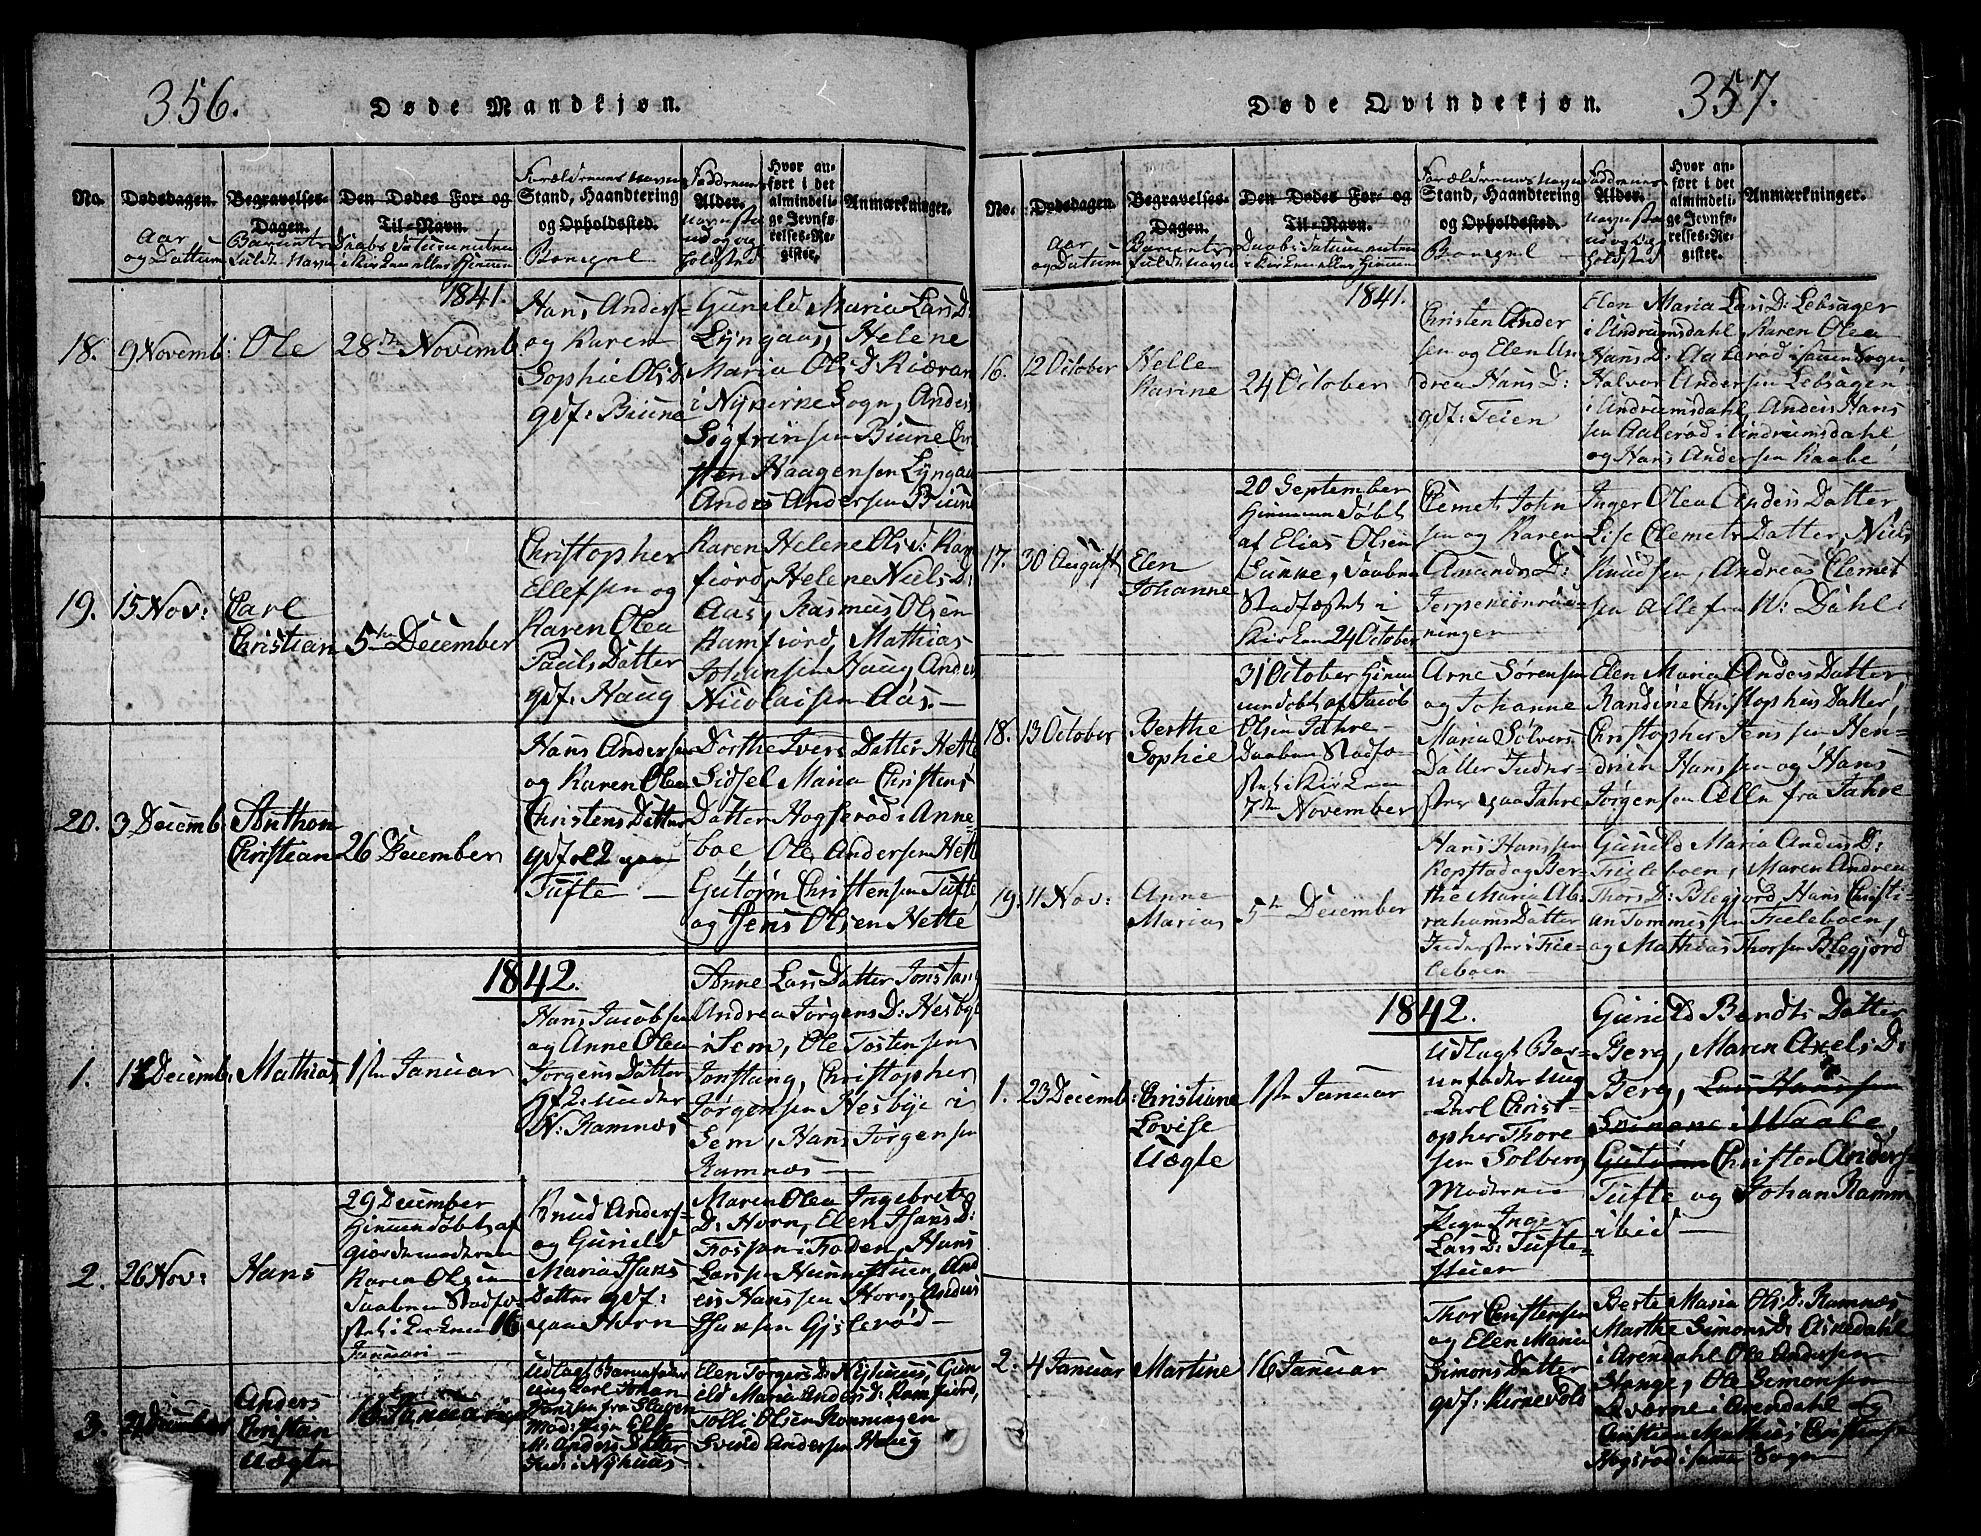 356.
Døde Mandkjøn.
No.
Dødsdagen.
Aar
og Dattum
Begravelses-
Dagen.
Barnets
fulde Navn
Den Dødes For- og
Til-Navn.
Daabs Datum enten
i Kirken eller Hiemme
Forældrenes Navn
Stand, Haandtering
og Opholdssted.
Borgerl
Faddernes
Alder.
Navn sta
nd og op
holdsted
Hvor an-
ført i det
almindeli-
ge Jevnfø-
relses-Re-
gister.
Anmærkninger.
1841.
18.
9 Novemb:
Ole
28de Novemb
Hans Anders-
og Karen
Sophie Ols D
gdf: Biune
Gunild Maria Lars D:
Lyngaas, Helene
Maria Ols D Kiæran
i Nykirke Sogn, Anders
Sogfrinsen Biune Chri
sten Haagensen Lyngaa
Anders Andersen Biune
19.
15 Nov:
Carl
Christian
5te December
Christopher
Ellefsen og
Karen Olea
Pauls Datter
gdf: Haug
Karen Helene Ols d: Ram
fiord, Helene Niels D:
Aas, Rasmus Olsen
Ramfiord, Mathias
Johansen Haug, Anders
Nicolaisen Aas.
20.
3 Decemb
Anthon
Christian
26 December
Hans Andersen
og Karen Olea
Christens Datter
gdf
Tufte
Dorthe Ivers Datter Hette
Sidsel Maria Christens
Datter Hogserød i Anne-
boe Ole Andersen Hette
Gutorm Christensen Tufte
og Jens Olsen Hette
1842.
1.
Decemb:
Mathias
1ste Januar
Hans Jacobsen
og Anne Olea
Jørgens Datter
gf
N: Ramnæs
Anne Lars Datter Jonstang
Andrea Jørgens D: Hesbye
i Sem, Ole Tostensen
Jonstang, Christopher
Jørgensen Hesbye i
Sem, Hans Jørgensen
Ramnæs
2.
26 Nov:
Hans
29 December
Hiemmedøbt af
Giordemoderen
Karen Olsen
Daaben Stadfæ-
stet i Kirken 16
Januari
Knud Anders-
og Gunild
Maria Hans
Datter gdf:
paa Horn
Maren Olea Ingebrets
D: Horn, Elen Hans D:
Fossan i Foden, Hans
Larssen Hunnestuen, And
ers Hanssen Horn Anders
Hansen Gislerød
3.
December
Anders
Christian
Uægte
16 Januari
Udlagt Barnefader
Ung Carl Johan
Hanssen fra Slagen
Mod: Pign Elle
M: Anders Datter
Inds: i Nyhuus
Elen Torgers D: Nyhuus, Gun
ild Maria Anders D: Ramfiord,
Tolli Olsen Rønningen
Svend Andersen Haug
357.
Døde Qvindekjøn.
No.
Dødsdagen.
Aar
og Datum
Begravelses-
Dagen.
Barnets
fulde Navn
Den Dødes For- og
Til-Navn.
Daabs Datum enten
i Kirken eller Hiemme
Forældrenes Navn
Stand, Haandtering
og Opholdssted.
Borgerl
Faddernes
Alder.
Navn sta
nd og Op
holdsted
Hvor an-
ført i det
almindeli-
ge Jevnfø-
relses-Re-
gister.
Anmærkninger.
1841.
16.
12 October
Helle
Karine
24 October
Christen Ander
sen og Elen An-
drea Hans D:
gdf: Teien
Elen Maria Lars D: Lebsager
i Andrumsdahl, Karen Olea
Hans D: Aalerød i samme Sogn
Halvor Andersen Lebsagen
i Andrumsdahl, Anders Hans
sen Aalerød i Andrumsdahl
og Hans Andersen Raabe
17.
30 August
Elen
Johanne
20 September
Hiemmedøbt
af Elias Olsen
Sunne, Daaben
Stadfæstet i
Kirken 24 October
Clemet John
sen og Karen
Amunds D:
Inger Olea Anders Datter
Lise Clemets Datter, Niels
Knudsen, Andreas Clemet
sen Alle fra W: Dahl
18.
13 October
Berthe
Sophie
31 October Hiem
medøbt af Jacob
Olsen Jahre
Daaben Stadfæ-
stet i Kirken
7de November
Arne Sørensen
og Johanne
Maria Sølvers
Datter Inder-
ster paa Jahre
Elen Maria Anders Datter
Randine Christophers Datter,
Christopher Jenssen Hen-
drich Hanssen og Hans
Jørgensen Alle fra Jahre
19.
11 Nov:
Anne
Maria
5te December
Hans Hanssen
Kopstad og Ber-
the Maria Ab-
rahams Datter
Inderster i Fie-
leboen
Gunild Maria Anders D:
Fieleboen, Maren Andrea
Thors D: Blegjord, Hans Christi-
an Tommessen Fieleboen,
og Mathias Thorsen Blegjord
1842.
1.
23 Decemb:
Christiane
Lovise
Uægte
1ste Januar
Udlagt Bar-
nefader Ung
Carl Christ-
opher Thore
sen Solberg
Moderen
Pign Inger
Lars D: Tufte-
stuen
Gunild Bendts Datter
Berg, Maren Axels D:
Berg, Lars Hanssen
i Waale,
Gutorm Christen Anders-
Tufte og Johan Ramm
ibid
2.
4 Januar
Martine
16 Januar
Thor Christensen
og Elen Maria
Simons Datter
gdf: Kirkevold
Berte Maria Ols D: Ramnæs,
Marthe Simons D:
i Arendahl Ole Andersen
Hauge, Ole Simonsen
Qværne i Arendahl og
Christian Mathias Christense
Hogsrød i samme Sogn